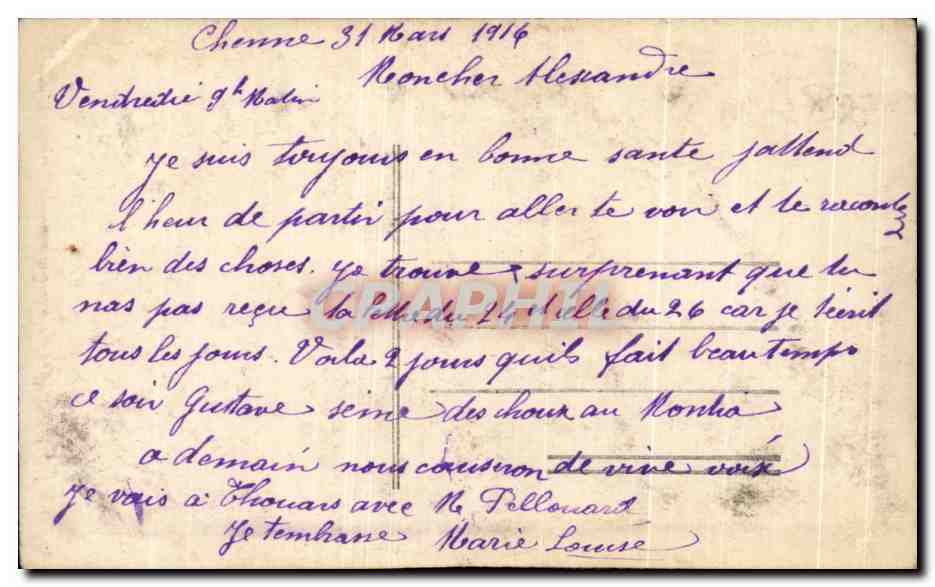 Chenne 31 Mars 1916
Mon cher Alexandre
Vendredie 9h Matin
Je suis toujours en bonne sante jattend
l'heur de partir pour aller te voir et te raconter
bien des choses. je trouve surprenant que tu
nas pas reçu la lettre du 24 et elle du 26 car je técrit
tous les jours. Voila 2 jours quils fait beau temps
ce soir Gustave sème des choux au
a demain nous causeron de vive voix
Je vais à Thouars avec M. Pellouard
Je tembrasse Marie Louise
CPAPHIL